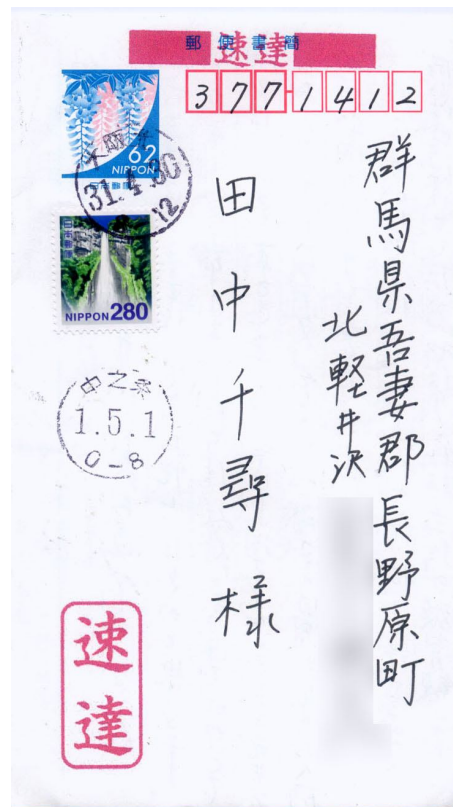 郵便書簡
速達
377-1412
62
NIPPON
日本郵便
31.4.30
12
NIPPON 280
中之条
1.5.1
0-8
群馬県吾妻郡長野原町
北軽井沢
田中千尋様
速達